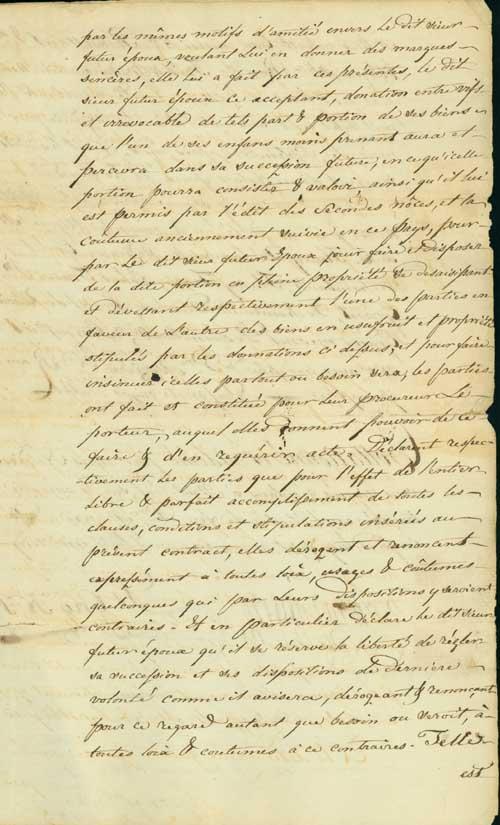 par les mêmes motifs d'amitié envers Le dit sieur
futur époux, voulant Lui en donner des marques
sincères, elle lui a fait par ces présentes, le dit
sieur futur époux ce acceptant, donation entre vifs
et irrévocable de tele part & portion de ses biens
que l'un de ses enfans moins prenant aura et
percevra dans sa succession future; en ce qu'icelle
portion pourra consister & valoir, ainsi qu'il lui
est permis par l'édit des Secondes nôces, et la
Coutume anciennement suivie en ce pays, pour
par Le dit sieur futur Epoux jouir faire et disposer
de la dite portion en pleine Propriété se desaisissant
et dévettant respectivement l'une des parties en
faveur de L'autre des biens en usufruit et propriété
stipulés par les donations ci dessus; et pour faire
insinuer icelles partout ou besoin sera; les parties
ont fait et constitué pour Leur procureur Le
porteur, auquel elles donnent pouvoir de ce
faire & d'en requérir acte. Déclarent respec-
-tivement Les parties que pour l'effet de l'entier
Libre & parfait accomplissement de toutes les
clauses, conditions et stipulations insérées au
présent contract, elles dérogent et renoncent
expressément à toutes loix, usages & coûtumes
quelconques qui par Leurs dispositions y seroient
contraires. Et en particulier Déclare le dit sieur
futur époux qu'il se réserve la liberté de régler
sa succession et ses dispositions de dernière
volonté comme il avisera, dérogeant & renonçant
pour ce regard autant que besoin ou seroit, à
toutes loix & coutumes à ce contraires. Telle
est